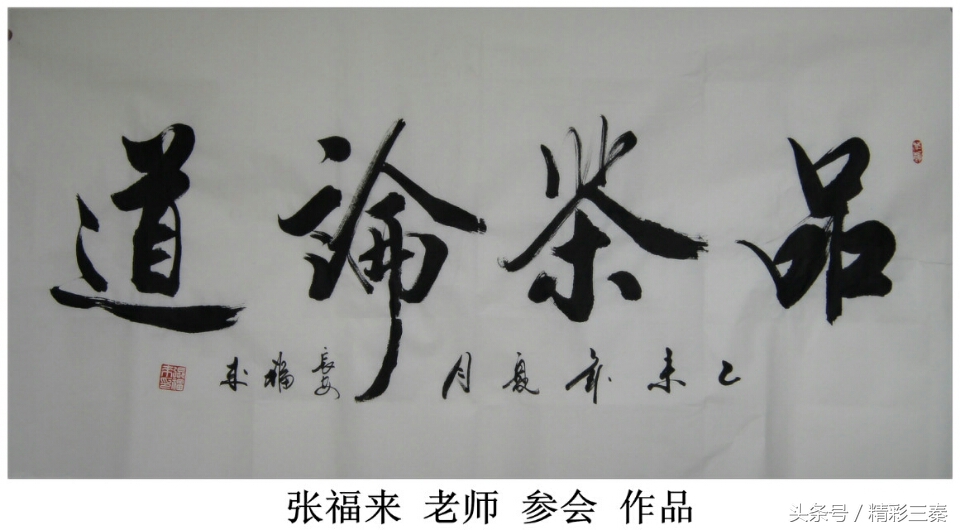 品茶論道
乙未年夏月 長安 福来
张福来 老师 参会 作品
头条号 / 精彩三秦